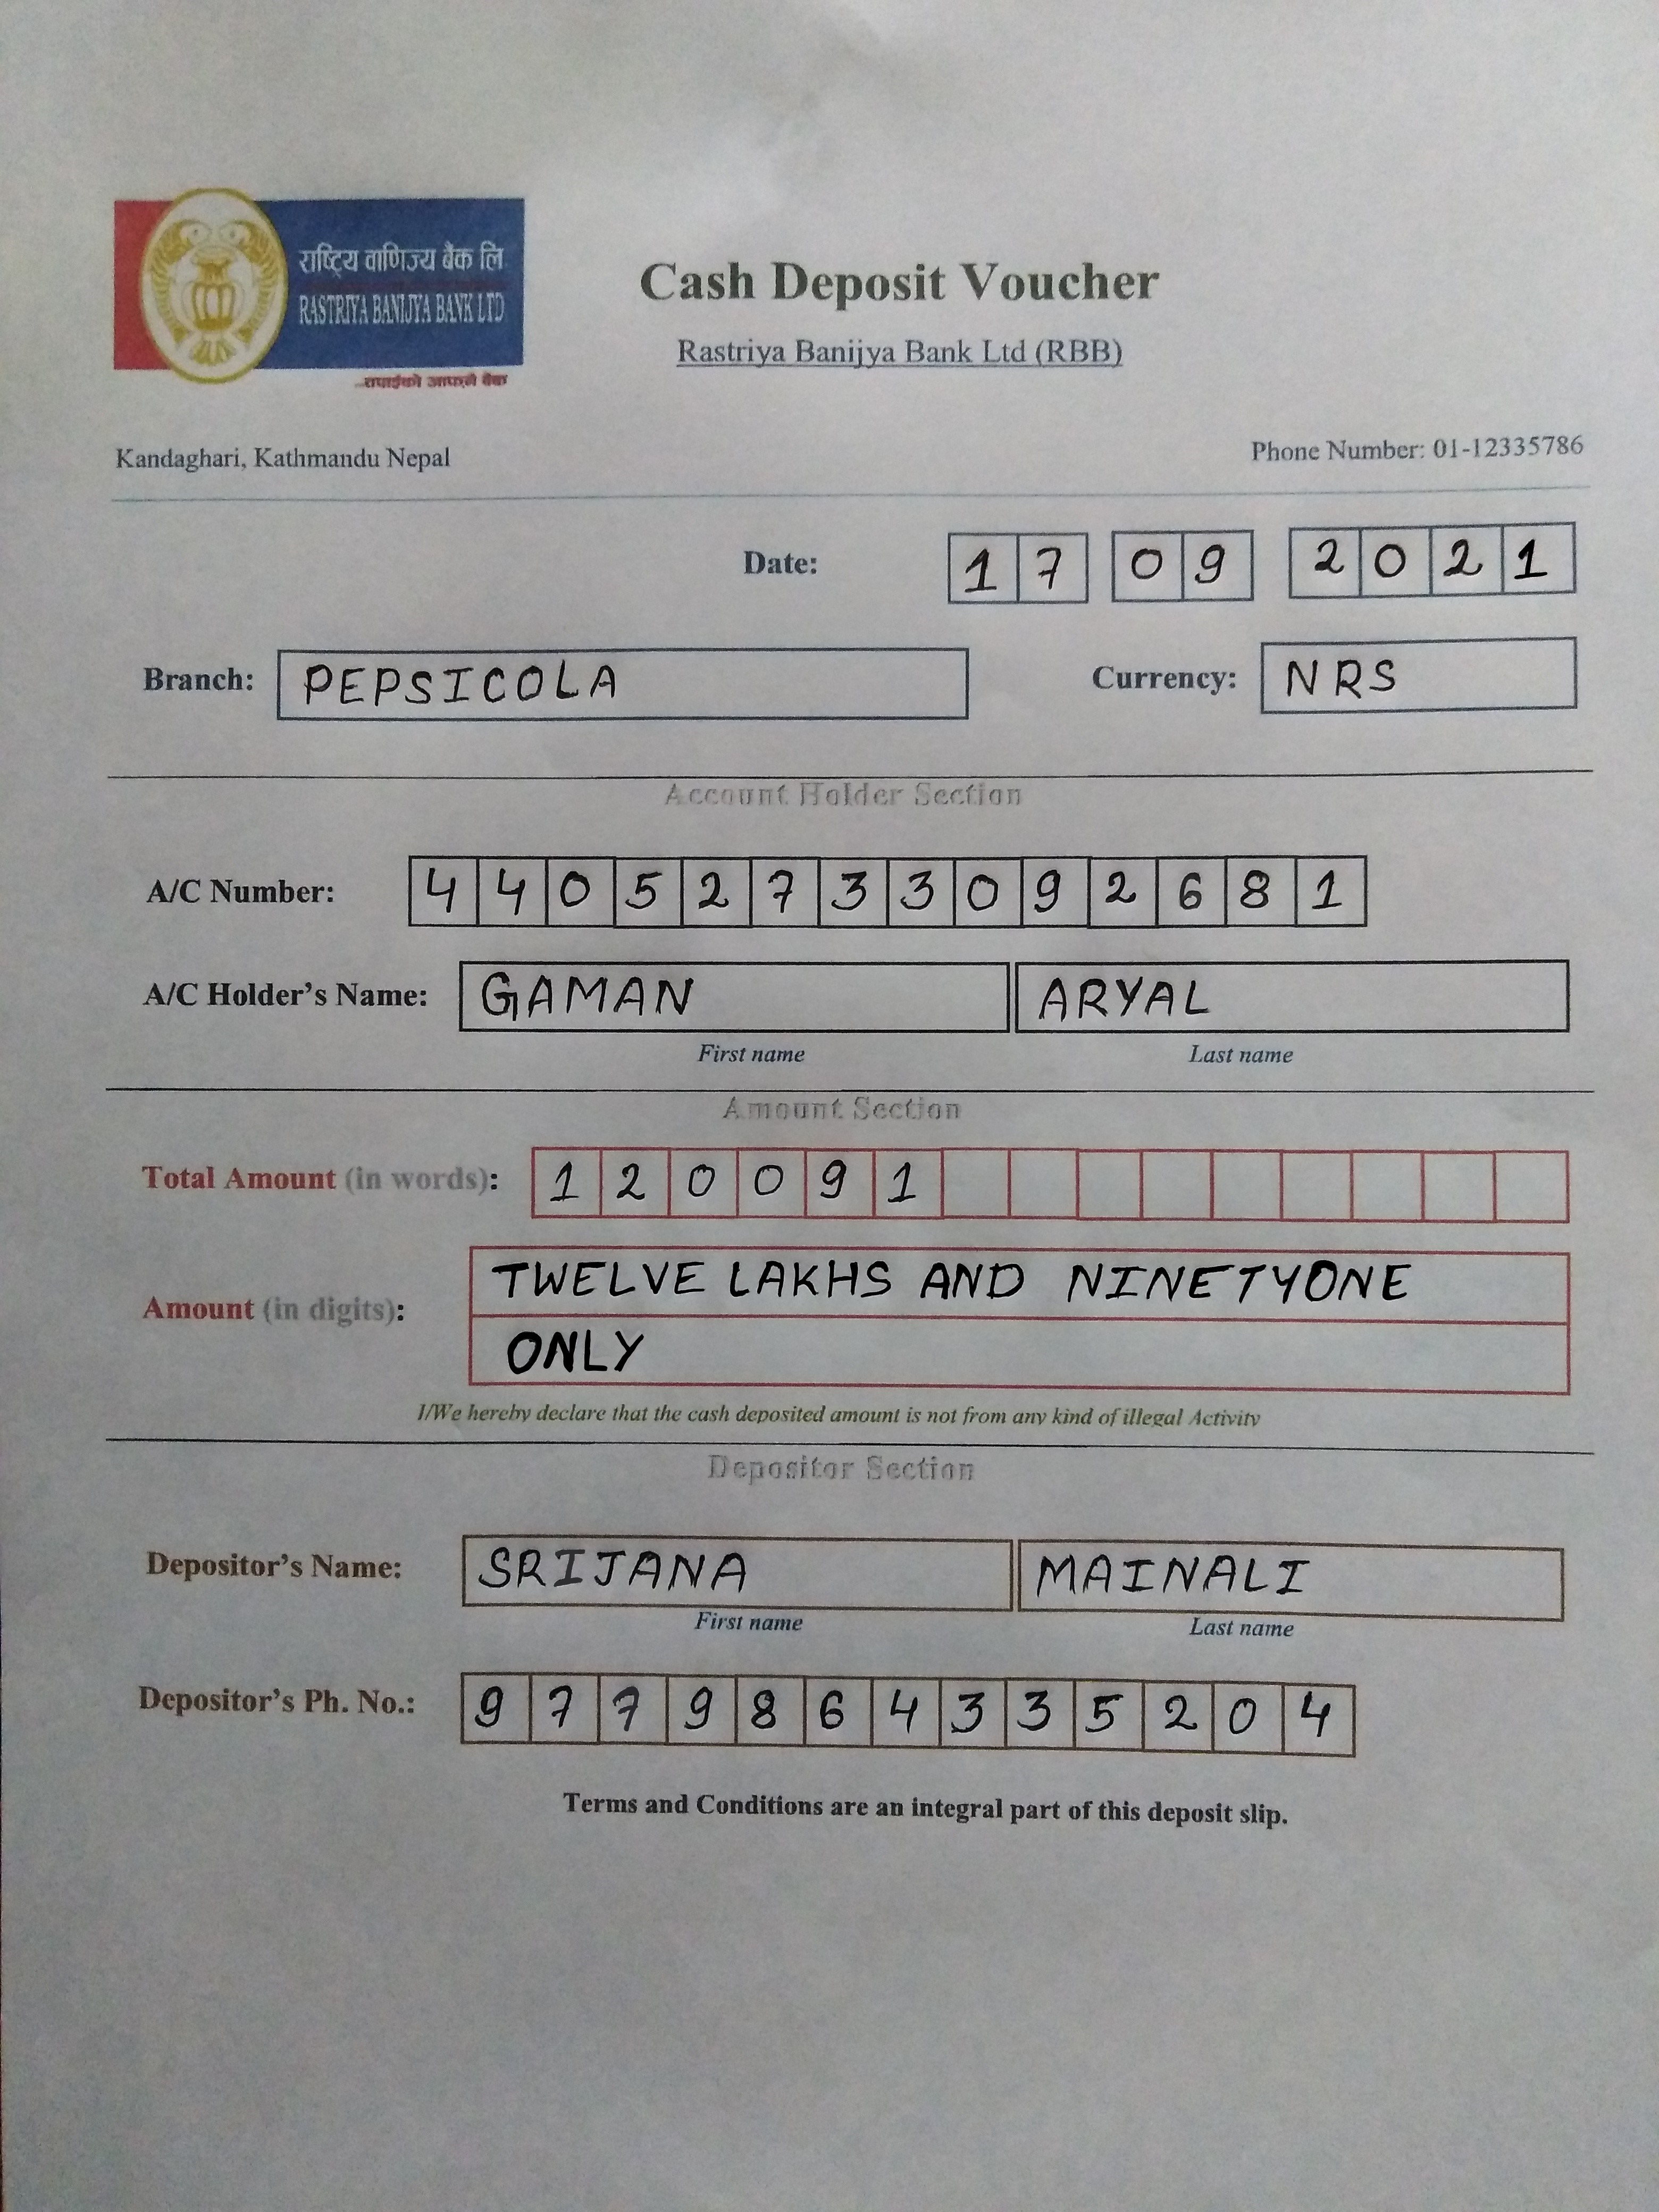 राष्ट्रिय वाणिज्य बैंक लि
RASTRIYA BANIJYA BANK LTD
...तपाईंको आफ्नै बैंक
Cash Deposit Voucher
Rastriya Banijya Bank Ltd (RBB)
Kandaghari, Kathmandu Nepal
Phone Number: 01-12335786
Date: 17 09 2021
Branch: PEPSICOLA Currency: NRS
Account Holder Section
A/C Number: 44052733092681
A/C Holder's Name: GAMAN ARYAL
First name Last name
Amount Section
Total Amount (in words): 120091
Amount (in digits): TWELVE LAKHS AND NINETYONE
ONLY
I/We hereby declare that the cash deposited amount is not from any kind of illegal Activity
Depositor Section
Depositor's Name: SRIJANA MAINALI
First name Last name
Depositor's Ph. No.: 9779864335204
Terms and Conditions are an integral part of this deposit slip.